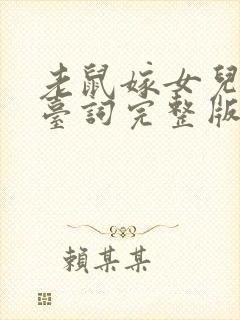 老鼠嫁女兒
臺詞完整版
賴某某